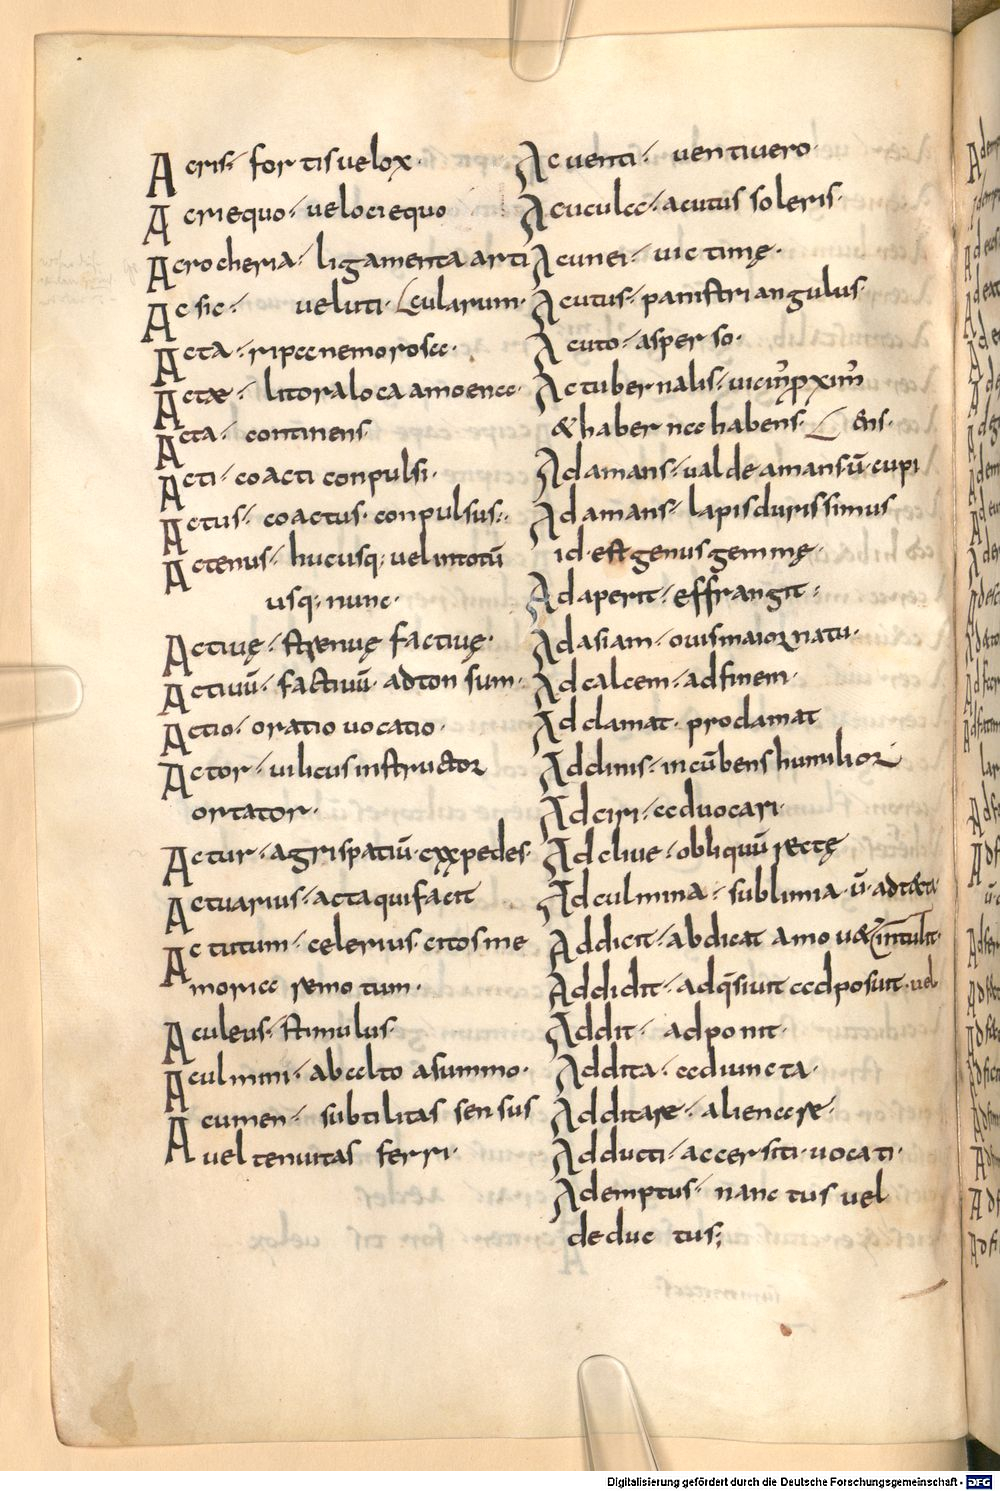 Acris· fortis velox·
Acriequo· velociequo
Acrocheria· ligamenta arti
Ac sic· veluti· cularum·
Acta· ripae nemorosae·
Actæ· litoralo ca amoenae·
Acta· continens
Acti· coacti conpulsi·
Actus· coactus· conpulsus·
Actenus· hucusq; vel in totū
usq; nunc·
Activę· strenuę factivę·
Activū· factivū· adton sum·
Actio· oratio vocatio·
Actor· vilicus instructor
ortator·
Actur· agri spatiū· cxxpedes·
Actuarius· acta qui facit
Actutum· celerius· citos me
moriae remotum·
Aculeus· stimulus·
Aculmini· ab alto a summo·
Acumen· subtilitas sensus
vel tenuitas ferri·
Ac venti· venti vero·
Acuculae· acutus soleris·
Acunei· victimę·
Acutus· panis triangulus
Acuto· asper so·
Actubernalis· vicin̄ p̱xim̄
& habernae habens· ens·
Adamans· valde amans ū· cupi
Adamans· lapis durissimus
id· est genus gemmę·
Adaperit· effrangit·
Adasiam· ovis maior natu·
Ad calcem· ad finem·
Adclamat· proclamat
Addinis· incūbens humilior
Adciri· advocari·
Adclive· obliquū rectę
Adculmina· sublimia· ū· ad tecta·
Addicit· abdicat amov& intulit·
Addidit· adq̄sivit adposuit· vel
Addit· adponit·
Addita· adiuncta·
Additare· alienare·
Adducti· accersiti· vocati·
Ademptus· nanctus vel
deductus;
Digitalisierung gefördert durch die Deutsche Forschungsgemeinschaft - DFG